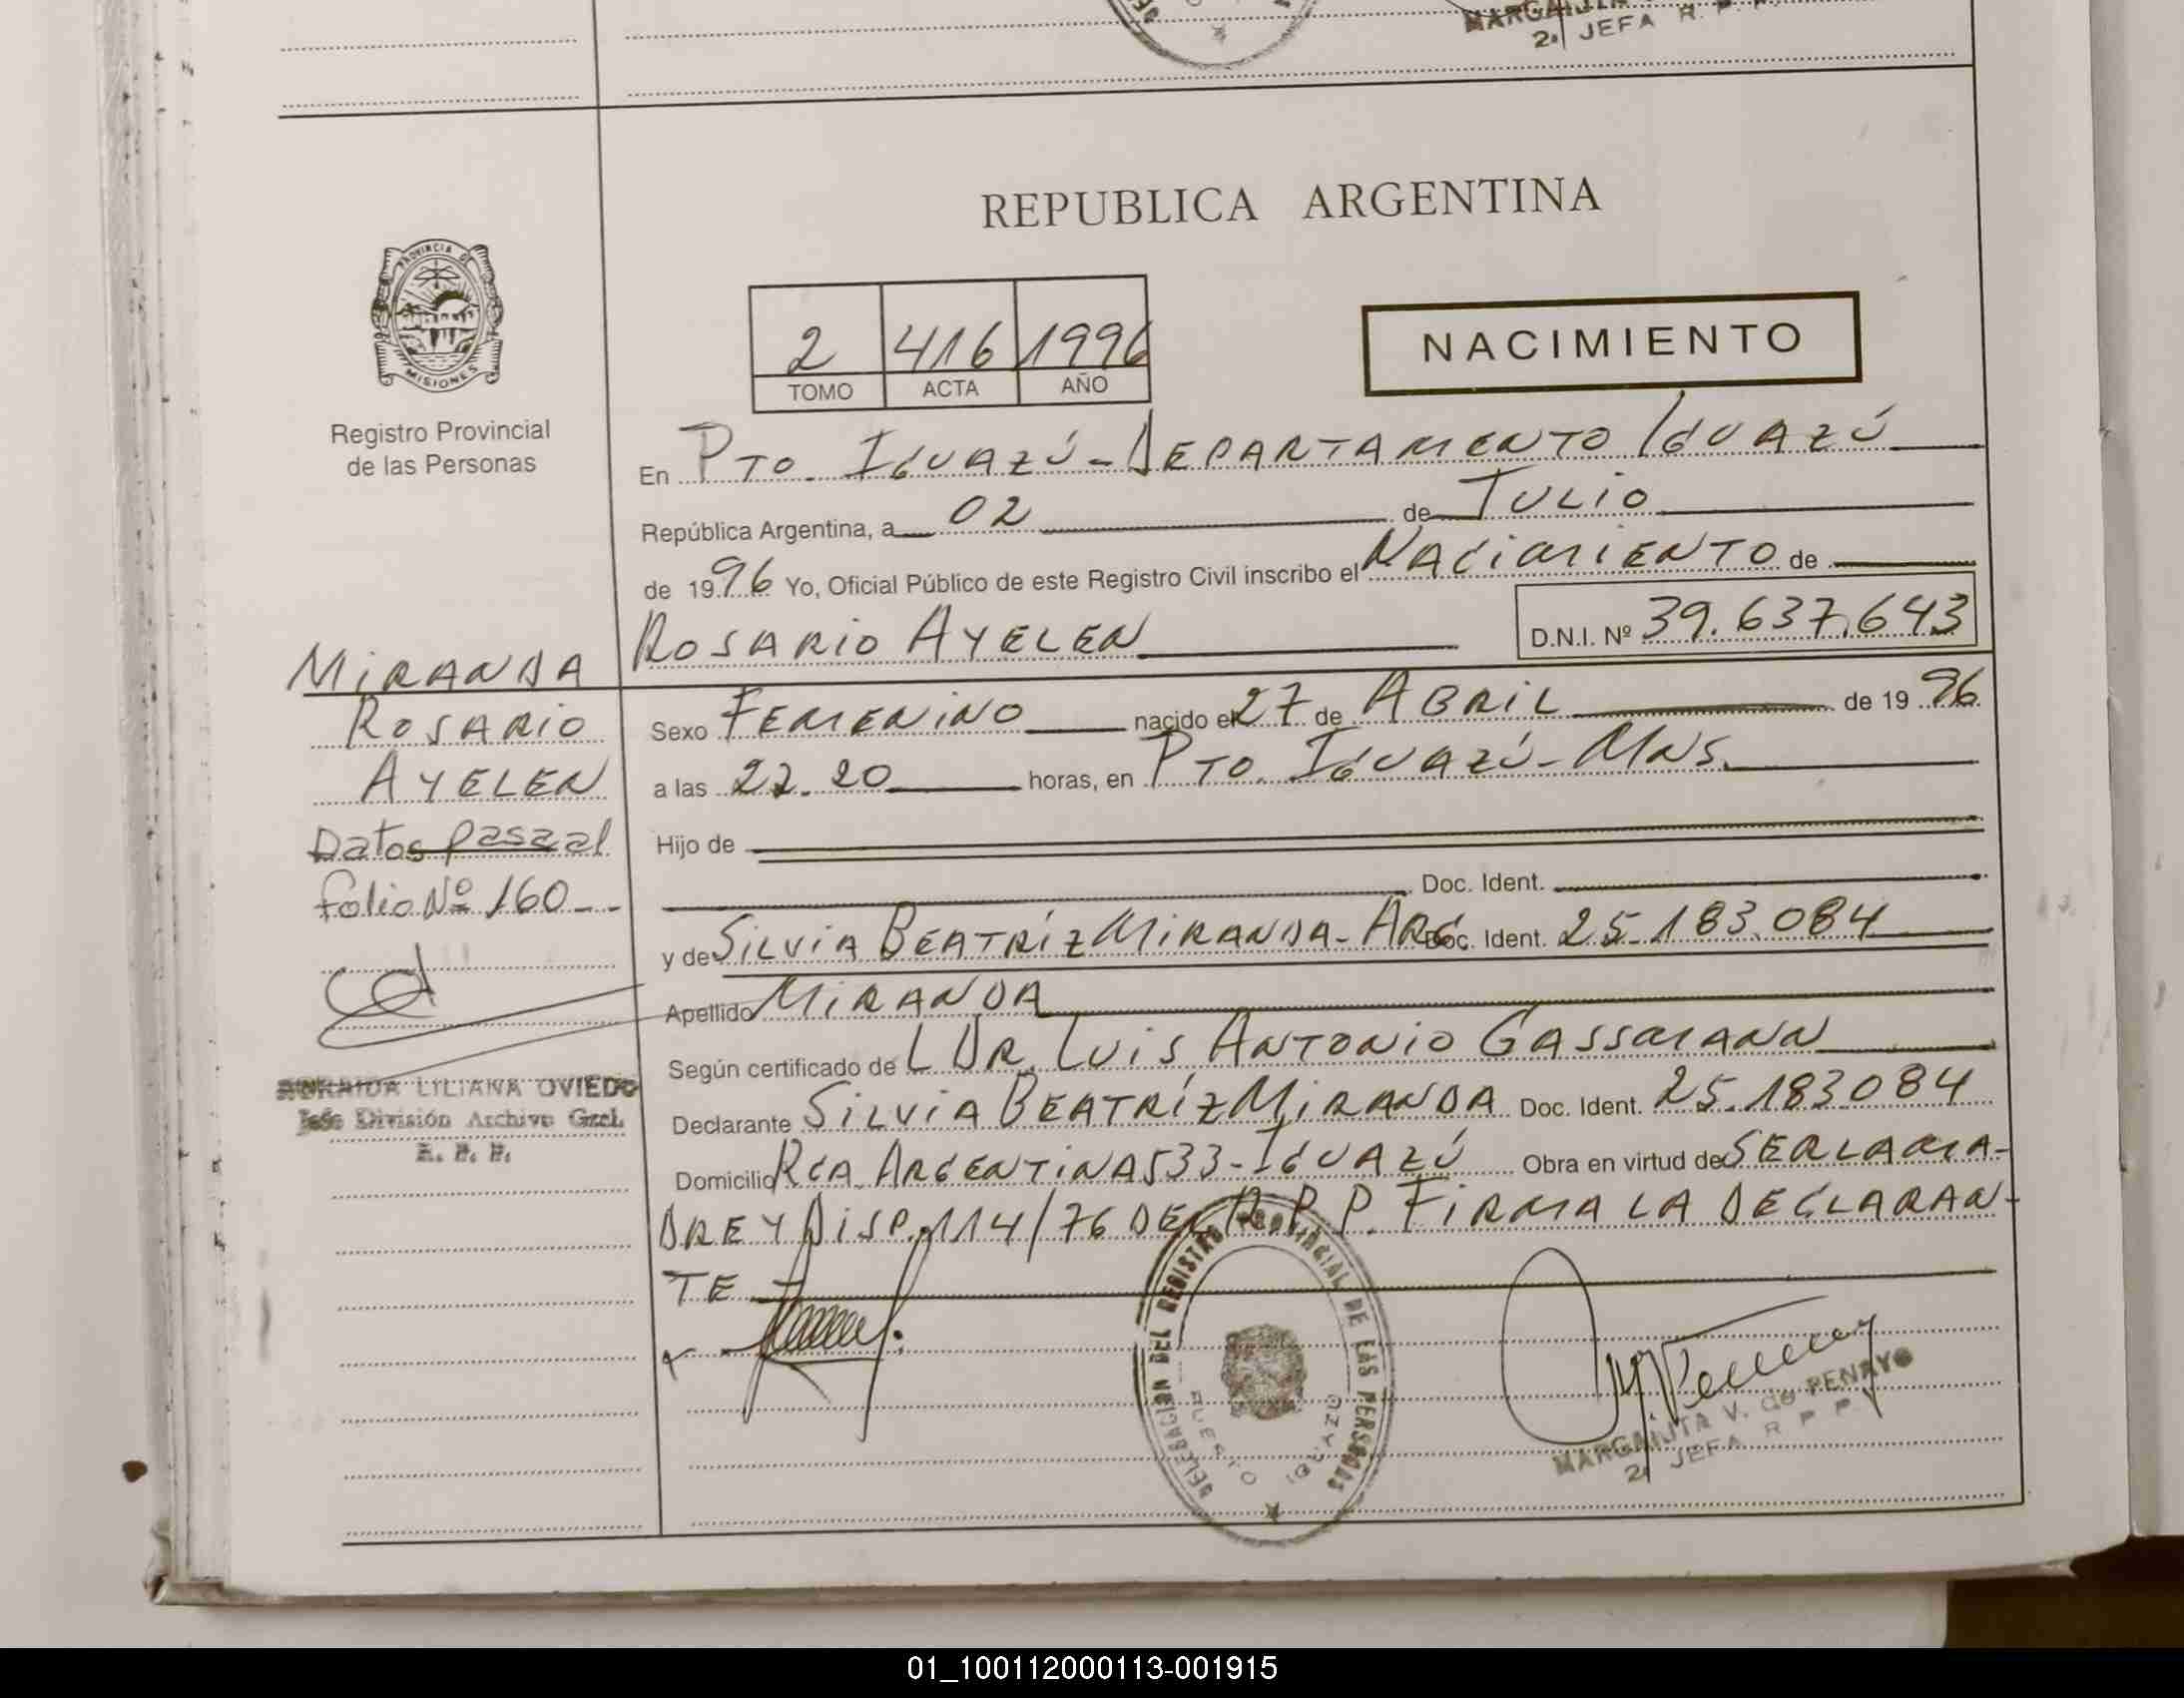 MARGARITA
2ª JEFA R. P. P.
REPUBLICA ARGENTINA
PROVINCIA DE
MISIONES
Registro Provincial
de las Personas
2 416 1996
TOMO ACTA AÑO
NACIMIENTO
En PTO. IGUAZÚ - DEPARTAMENTO IGUAZÚ
República Argentina, a 02 de JULIO
de 1996 Yo, Oficial Público de este Registro Civil inscribo el NACIMIENTO de
ROSARIO AYELEN D.N.I. Nº 39.637.643
MIRANDA
ROSARIO
AYELEN
Datos pasaal
folio Nº 160 --
LILIANA OVIEDO
Jefe División Archivo Gral.
R. P. P.
Sexo FEMENINO nacido el 27 de ABRIL de 1996
a las 22.20 horas, en PTO. IGUAZÚ - MNS.
Hijo de
Doc. Ident.
y de SILVIA BEATRÍZ MIRANDA - ARG Doc. Ident. 25.183.084
Apellido MIRANDA
Según certificado de L DR. LUIS ANTONIO GASSMANN
Declarante SILVIA BEATRÍZ MIRANDA Doc. Ident. 25.183084
Domicilio RCA. ARGENTINA 533 - IGUAZÚ Obra en virtud de SER LA MA-
DRE Y DISP. 114/76 DEL R.P.P. FIRMA LA DECLARAN-
TE
DELEGACION DEL REGISTRO PROVINCIAL DE LAS PERSONAS
PUERTO IGUAZU
MARGARITA V. de PENAYO
2ª JEFA R P P
01_100112000113-001915